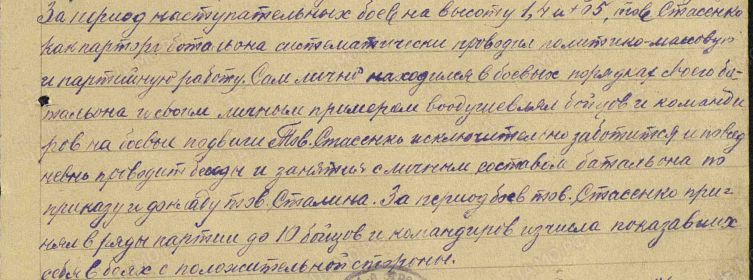 За период наступательных боев на высоту 1,4 и +65, тов. Стасенко
как парторг батальона систематически проводил политико-массовую
и партийную работу. Сам лично находился в боевых порядках своего ба-
тальона и своим личным примером воодушевлял бойцов и команди
ров на боевые подвиги Тов. Стасенко исключительно заботится и повсед
невно проводит беседы и занятия с личным составом батальона по
приказу и докладу тов. Сталина. За период боев тов. Стасенко при-
нял в ряды партии до 10 бойцов и командиров из числа показавших
себя в боях с положительной стороны.